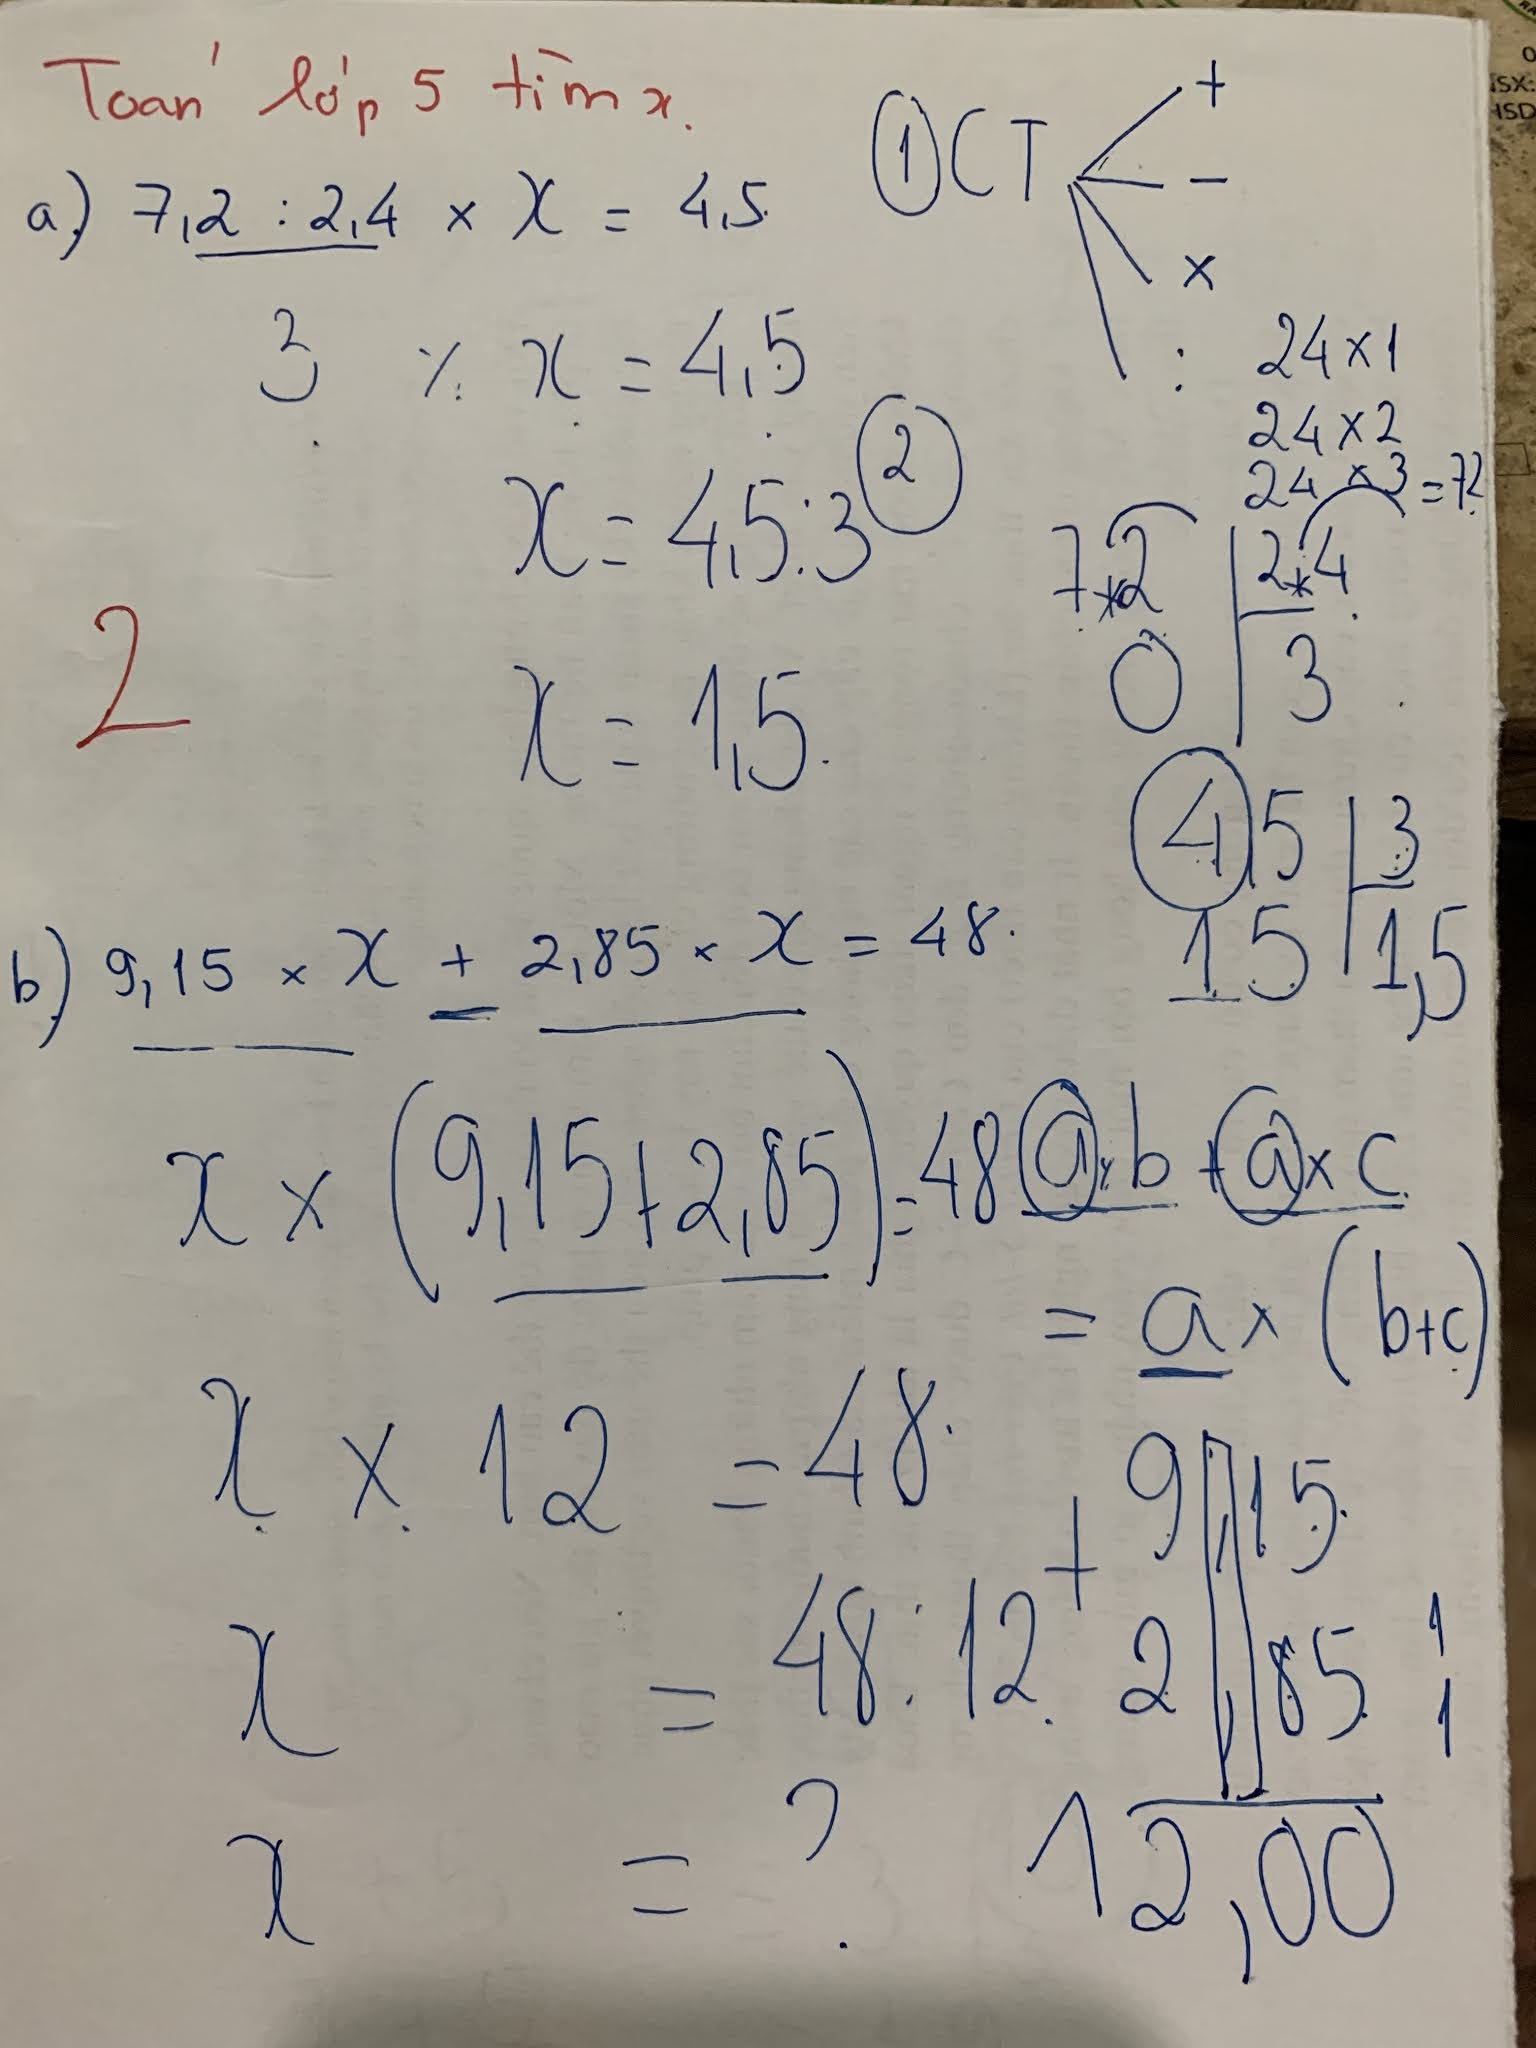 Toán lớp 5 tìm x.
a) 7,2 : 2,4 × x = 4,5
3 × x = 4,5
x = 4,5 : 3
x = 1,5.
2
1 CT + - × :
24 × 1
24 × 2
24 × 3 = 72
2
7,2 2,4
0 3
4,5 3
1 5 1,5
b) 9,15 × x + 2,85 × x = 48.
x × (9,15 + 2,85) = 48
a × b + a × c
= a × (b + c)
x × 12 = 48.
x = 48 : 12
x = ?
9,15
+
2,85
12,00
1
1
0
SX:
HSD